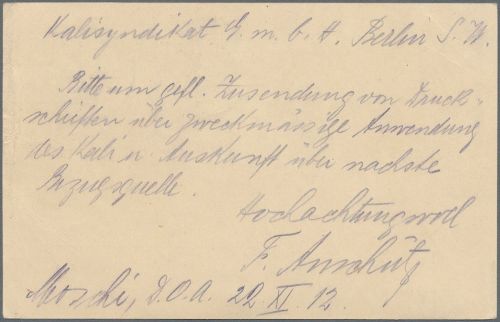 Kalisyndikat G. m. b. H. Berlin S. W.
Bitte um gefl. Zusendung von Druck-
schriften über zweckmässige Anwendung
des Kali u. Auskunft über nächste
Bezugsquelle.
Hochachtungsvoll
F. Anschütz
Moschi, D.O.A. 22. XI. 12.